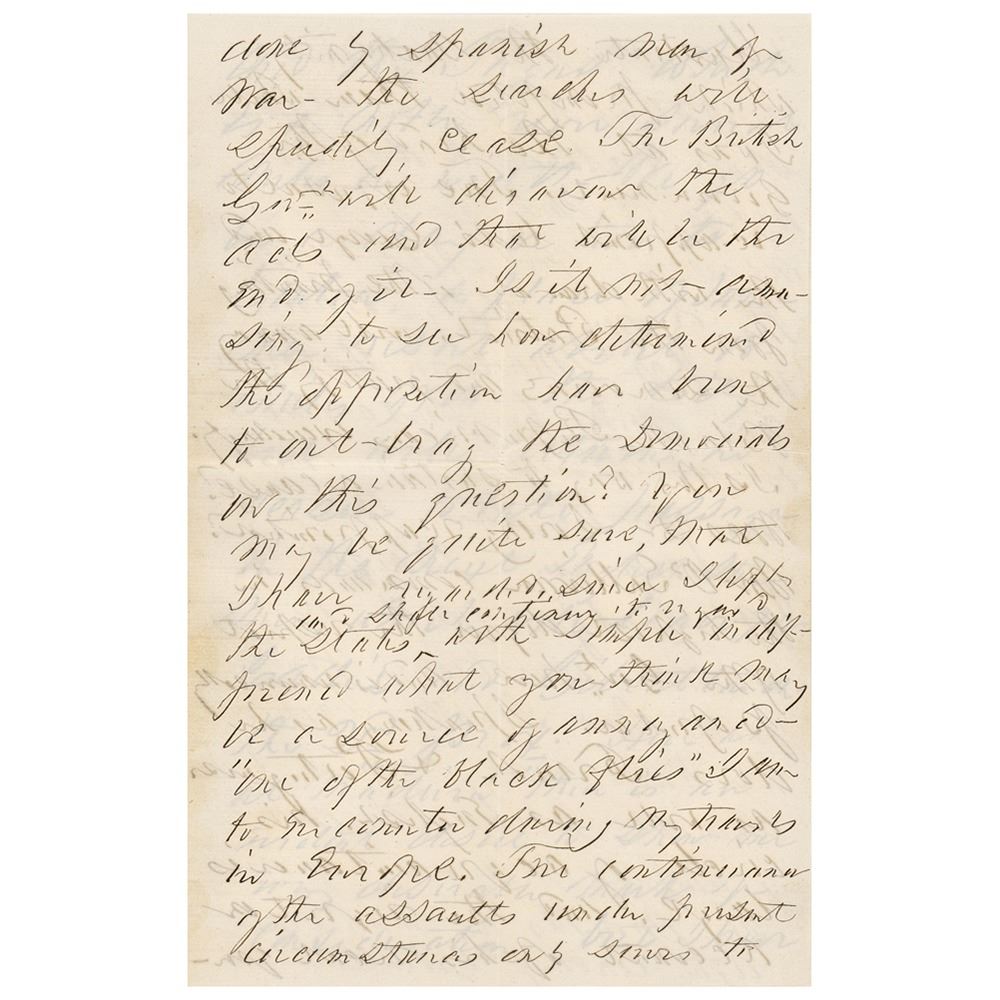 done by Spanish men of
War - the searches will
speedily cease. The British
Govt will disavow the
acts and that will be the
end of it - Is it not - amu-
sing to see how determined
the opposition have been
to out-brag the Democrats
on this question? You
may be quite sure, that
I have regarded, since I left
and shall continue to regard
the States, with simple indif-
ference what you think may
be a source of annoyance -
"one of the black flies" I am
to encounter during my travels
in Europe. The continuance
of the assaults under present
circumstances only serves to